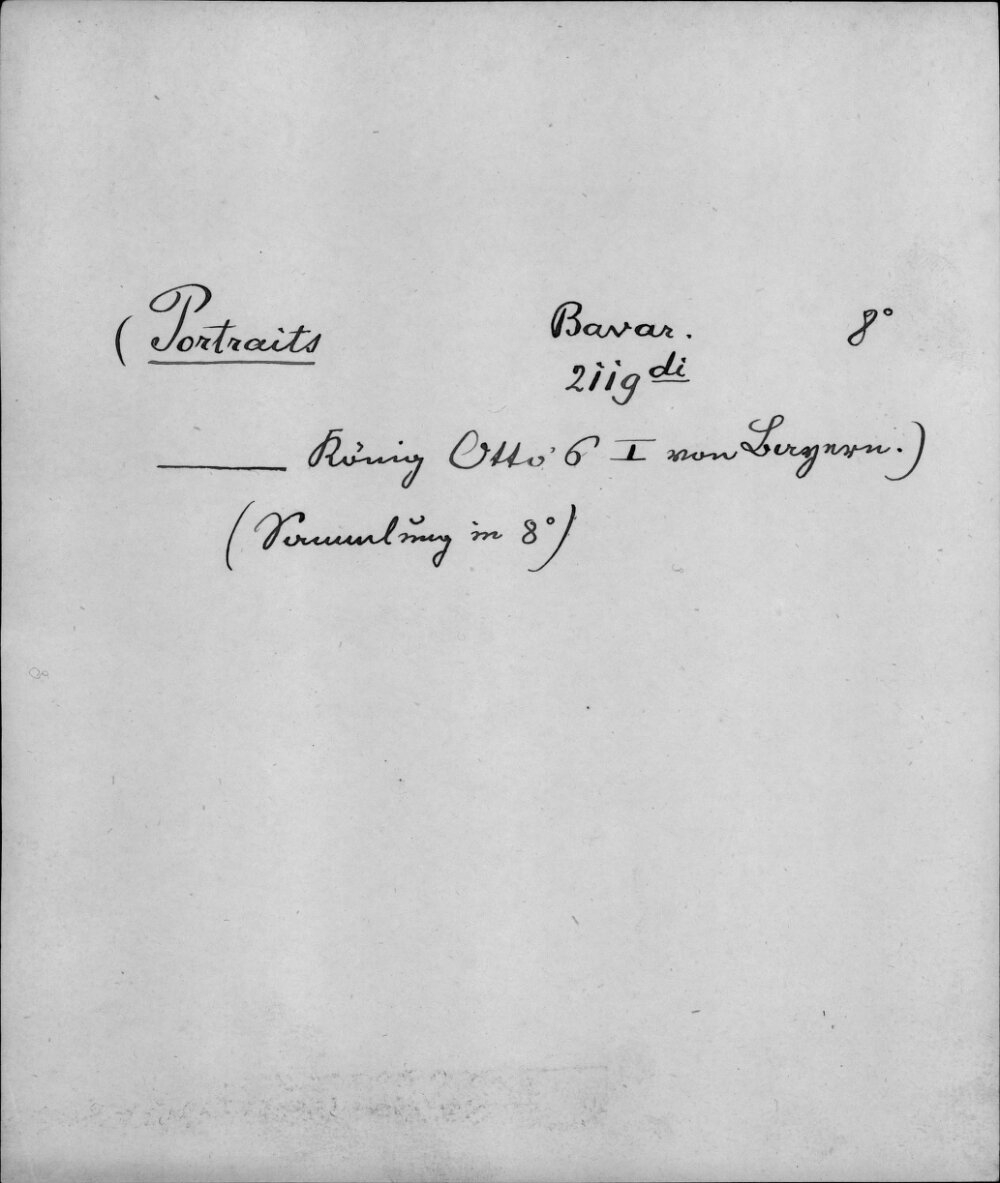 (Portraits Bavar. 8°
2119 di
König Otto's I von Bayern.)
(Sammlung in 8°)